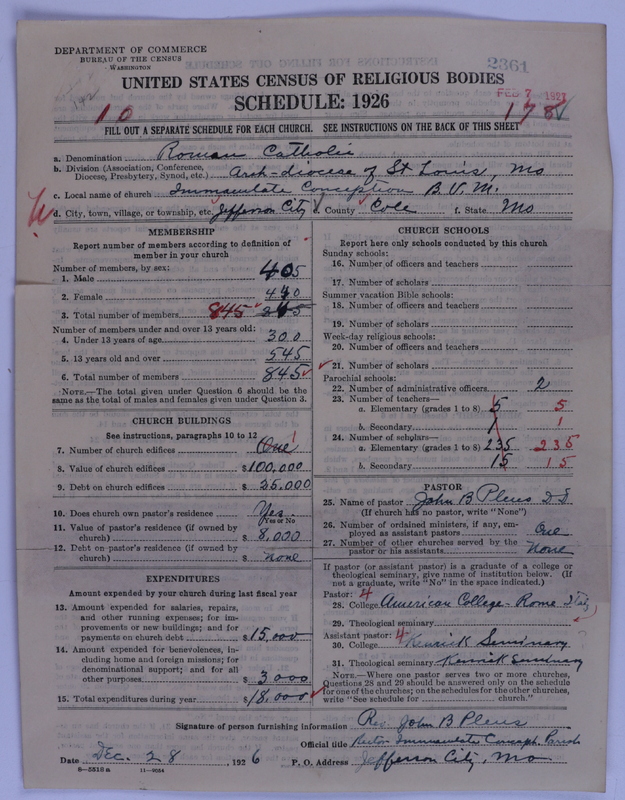 DEPARTMENT OF COMMERCE
BUREAU OF THE CENSUS
WASHINGTON
2361
UNITED STATES CENSUS OF RELIGIOUS BODIES
SCHEDULE: 1926
FEB 7 1927
10
178
FILL OUT A SEPARATE SCHEDULE FOR EACH CHURCH. SEE INSTRUCTIONS ON THE BACK OF THIS SHEET
a. Denomination Roman Catholic
b. Division (Association, Conference, Diocese, Presbytery, Synod, etc.) Arch-diocese of St Louis, Mo
c. Local name of church Immaculate Conception B.V.M.
d. City, town, village, or township, etc. Jefferson City e. County Cole f. State Mo
MEMBERSHIP
Report number of members according to definition of
member in your church
Number of members, by sex:
1. Male 405
2. Female 440
3. Total number of members 845 845
Number of members under and over 13 years old:
4. Under 13 years of age 300
5. 13 years old and over 545
6. Total number of members 845
NOTE.—The total given under Question 6 should be the
same as the total of males and females given under Question 3.
CHURCH BUILDINGS
See instructions, paragraphs 10 to 12
7. Number of church edifices One 1
8. Value of church edifices $100,000
9. Debt on church edifices $ 25,000
10. Does church own pastor's residence? Yes
Yes or No
11. Value of pastor's residence (if owned by
church) $ 8,000
12. Debt on pastor's residence (if owned by
church) $ none
EXPENDITURES
Amount expended by church during last fiscal year
13. Amount expended for salaries, repairs,
and other running expenses; for im-
provements or new buildings; and for
payments on church debt $15,000
14. Amount expended for benevolences, in-
cluding home and foreign missions; for
denominational support; and for all
other purposes $ 3000
15. Total expenditures during year $18,000
CHURCH SCHOOLS
Report here only schools conducted by this church
Sunday schools:
16. Number of officers and teachers
17. Number of scholars
Summer vacation Bible schools:
18. Number of officers and teachers
19. Number of scholars
Week-day religious schools:
20. Number of officers and teachers
21. Number of scholars
Parochial schools:
22. Number of administrative officers 2
23. Number of teachers—
a. Elementary (grades 1 to 8) 5 5
b. Secondary 1 1
24. Number of scholars—
a. Elementary (grades 1 to 8) 235 235
b. Secondary 15 15
PASTOR
25. Name of pastor John B Pleus D.D.
(If church has no pastor, write "None")
26. Number of ordained ministers, if any, em-
ployed as assistant pastors One
27. Number of other churches served by the
pastor or his assistants None
If pastor (or assistant pastor) is a graduate of a college or
theological seminary, give name of institution below. (If
not a graduate, write "No" in the space indicated.)
Pastor: 4
28. College American College - Rome Italy
29. Theological seminary
Assistant pastor: 4
30. College Kenrick Seminary
31. Theological seminary Kenrick Seminary
NOTE.—Where one pastor serves two or more churches,
Questions 28 and 29 should be answered only on the schedule
for one of the churches; on the schedules for the other churches,
write "See schedule for church."
Signature of person furnishing information Rev. John B Pleus
Official title Rector Immaculate Concept. Parish
Date Dec. 28, 1926 P. O. Address Jefferson City, Mo
8—5519 a 11—9034